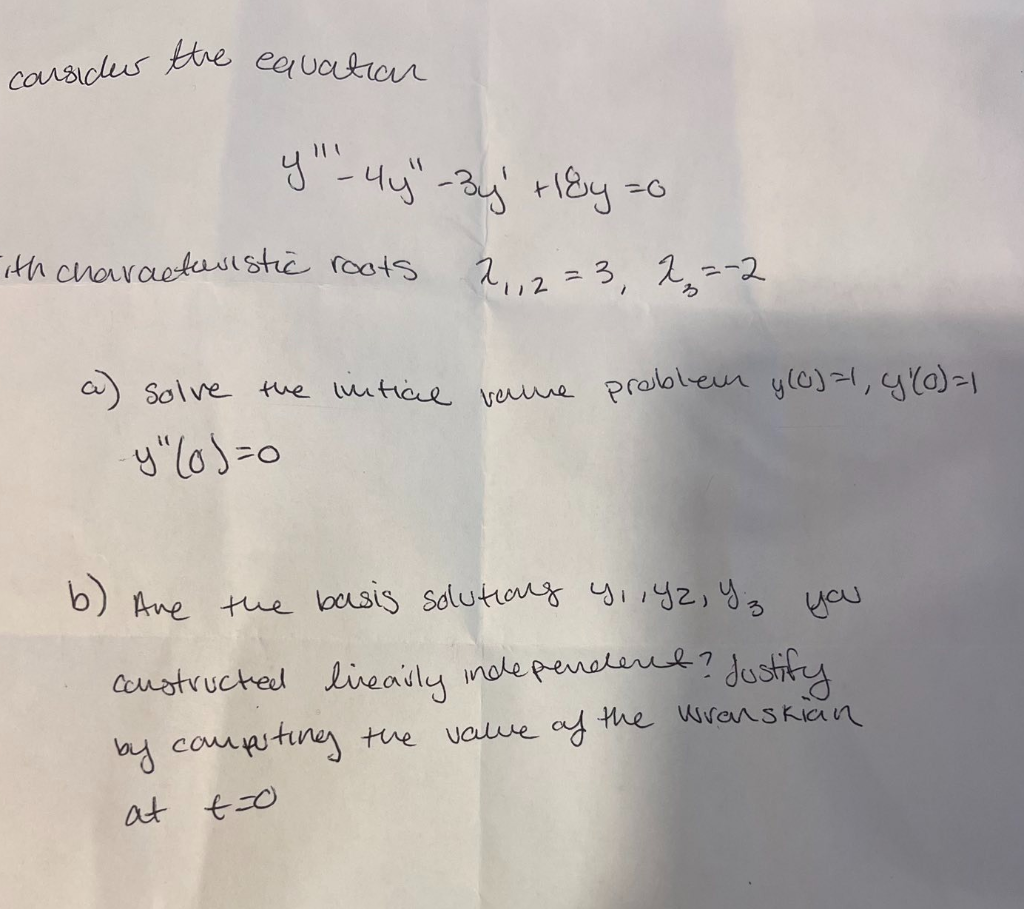 consider the equation
y''' - 4y'' - 3y' + 18y = 0
ith characteristic roots λ₁,₂ = 3, λ₃ = -2
a) solve the initial value problem y(0)=1, y'(0)=1
y''(0)=0
b) Are the basis solutions y₁, y₂, y₃ you
constructed linearly independent? Justify
by computing the value of the wronskian
at t=0